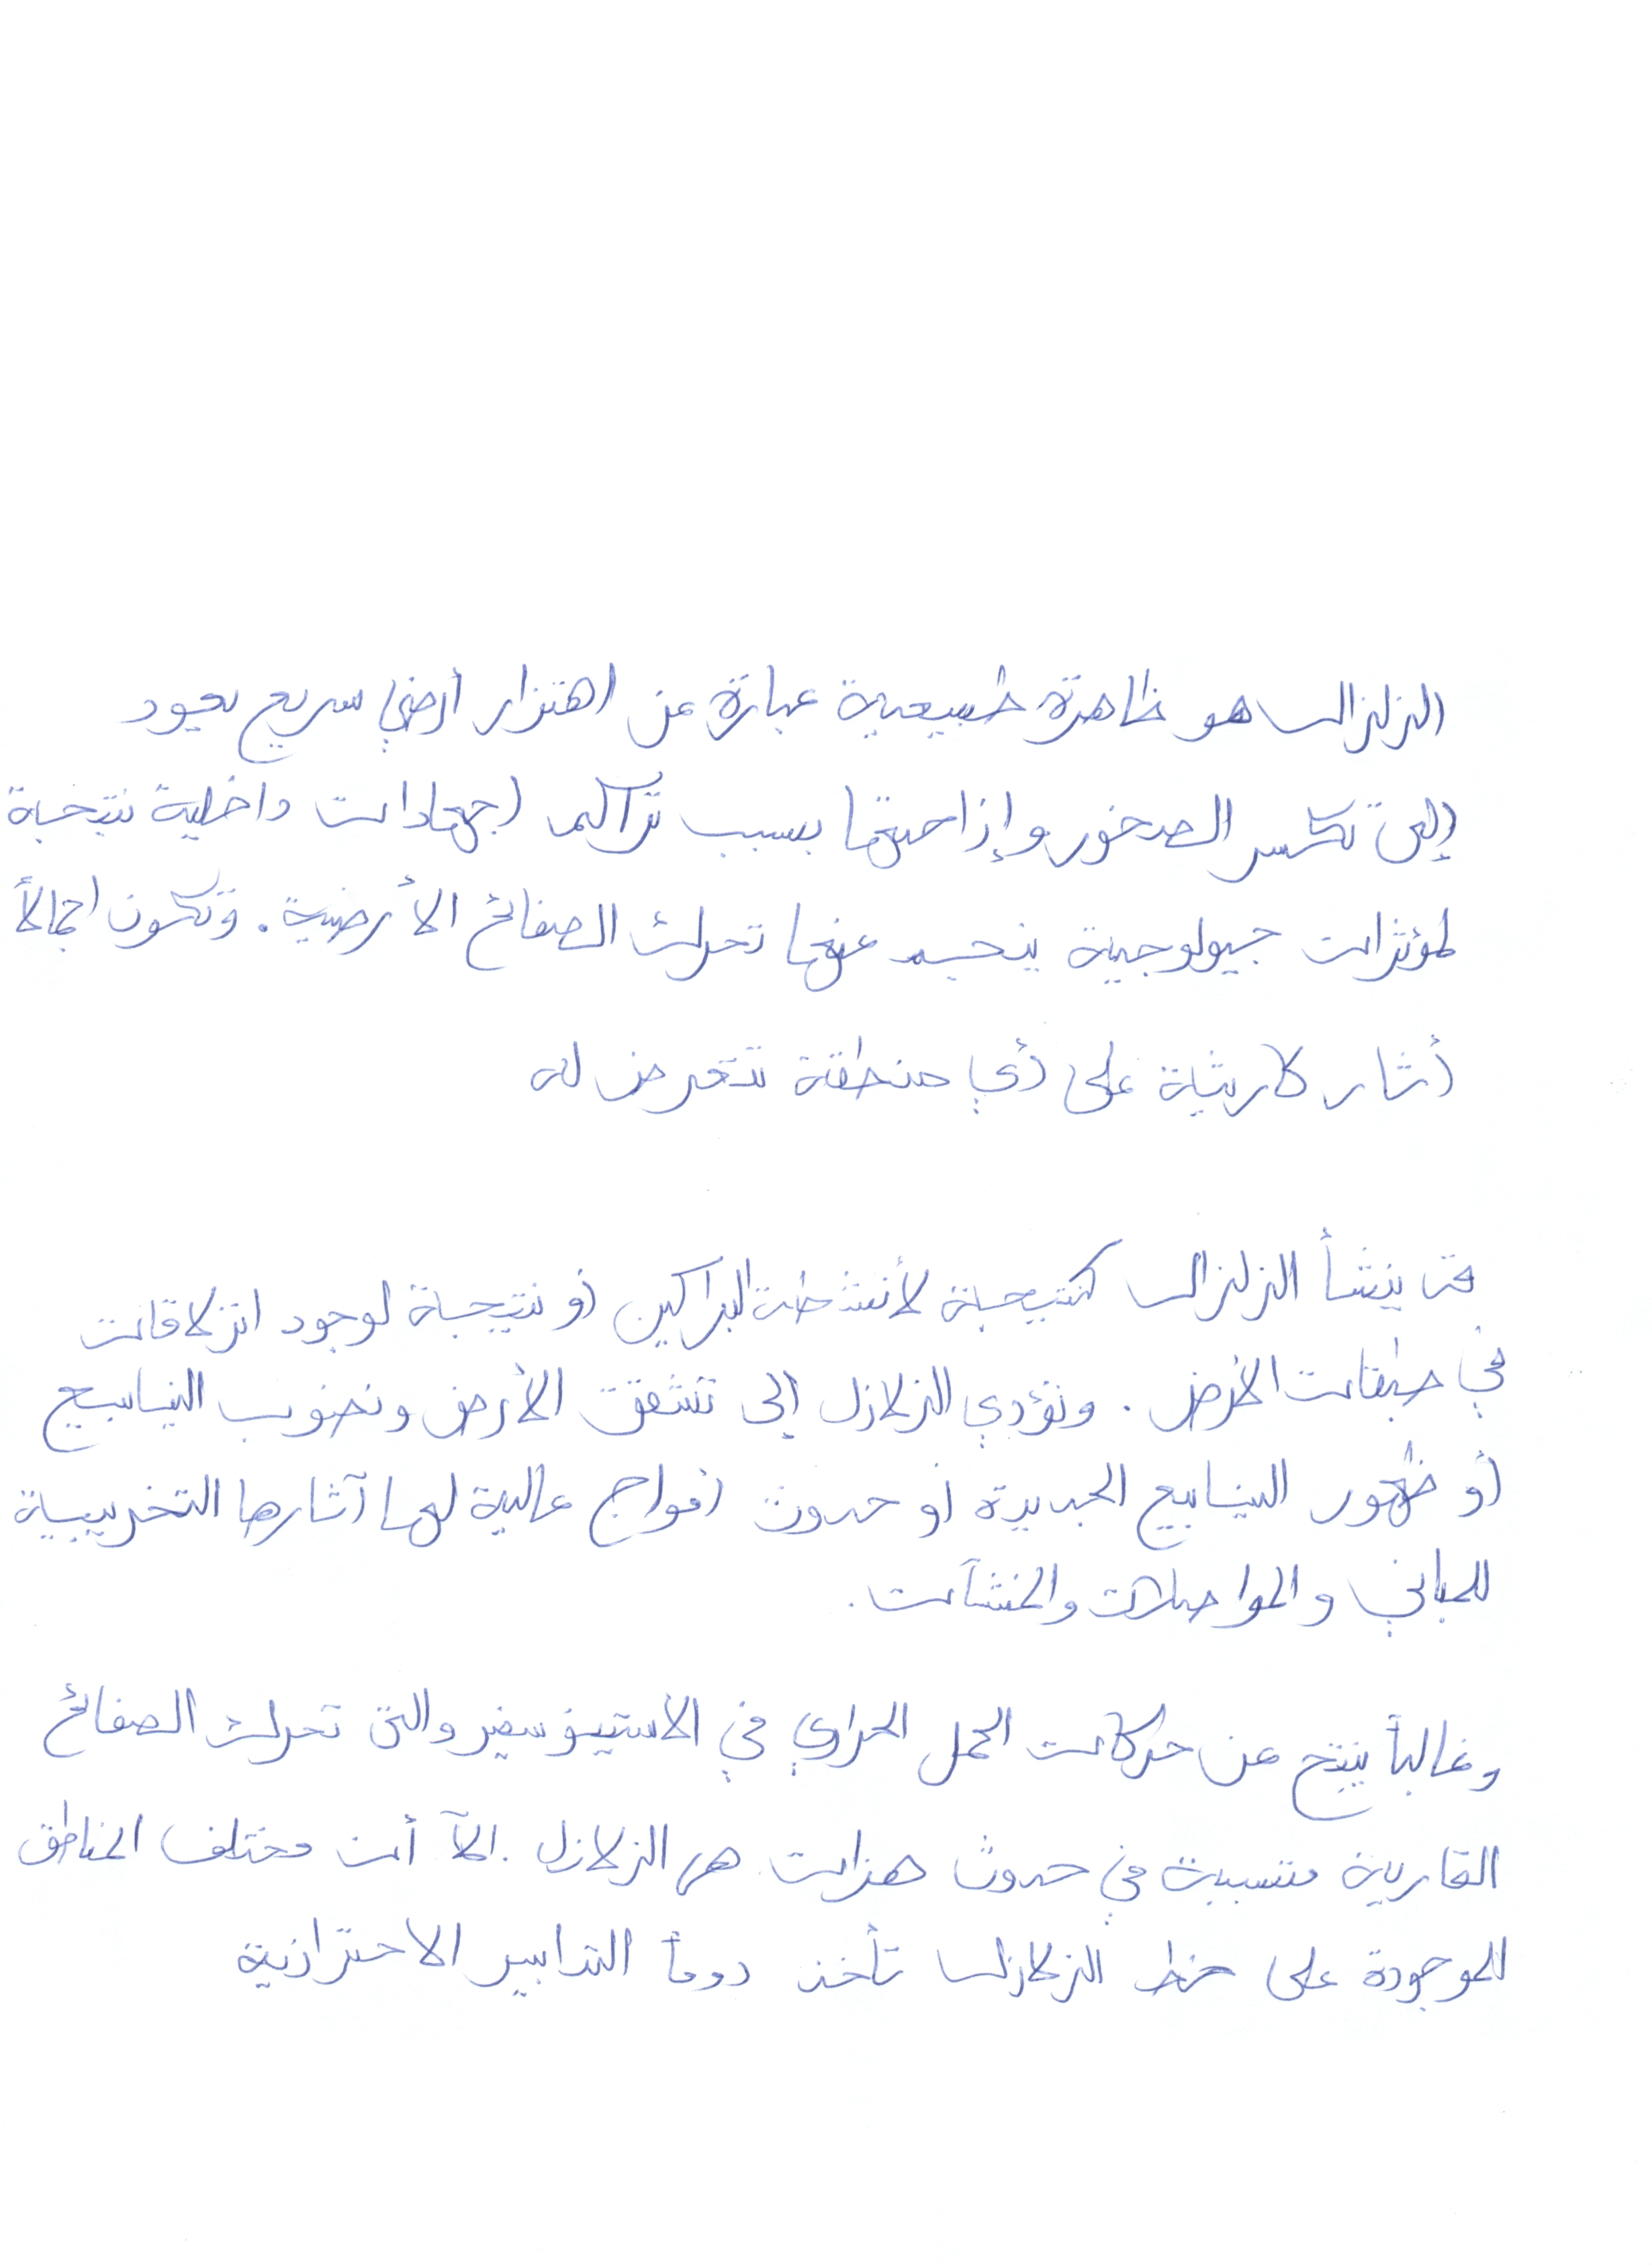 الزلزال هو ظاهرة طبيعية عبارة عن اهتزاز أرضي سريع يعود
إلى تكسر الصخور وإزاحتها بسبب تراكم اجهادات داخلية نتيجة
لمؤثرات جيولوجية ينجم عنها تحرك الصفائح الأرضية. وتكون اجمالاً
أثار كارثية على أي منطقة تتعرض له
قد ينشأ الزلزال كنتيجة لأنشطة البراكين أو نتيجة لوجود انزلاقات
في طبقات الأرض. وتؤدي الزلازل إلى تشقق الأرض ونضوب الينابيع
أو ظهور الينابيع الجديدة أو حدوث أمواج عالية لها آثارها التخريبية
للمباني والمواصلات والمنشآت.
وغالباً ينتج عن حركات الحمل الحراري في الاستينوسفير والتي تحرك الصفائح
القارية متسببة في حدوث هزات هي الزلازل. الآ أن مختلف المناطق
الموجودة على خط الزلازل تأخذ دوماً التدابير الاحترازية